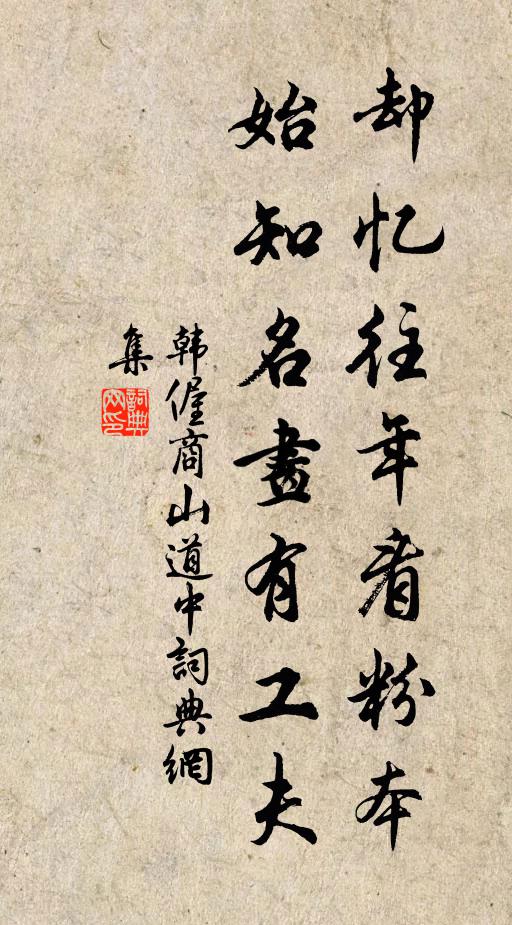 却忆往年看粉本
始知名畫有工夫
韩偓商山道中詞典網
集
詞典
网印